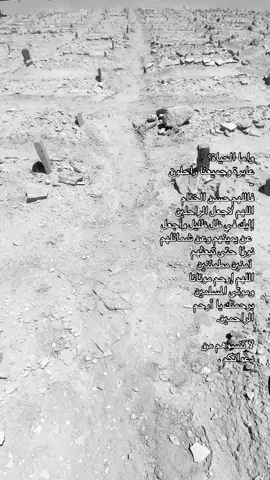 واما الحياة؟
عابرة وجميعنا راحلون
-
فاللهم حسن الختام
اللهم لاجعل الراحلين
إليك في ظل ظليل وأجعل
عن يمينهم وعن شمائلهم
نورًا حتى تبعثهم
آمنين مطمئنين
اللهم إرحم موتانا
وموتى المسلمين
برحمتك يا أرحم
الراحمين.
لاتنسوهم من
دعواتكم